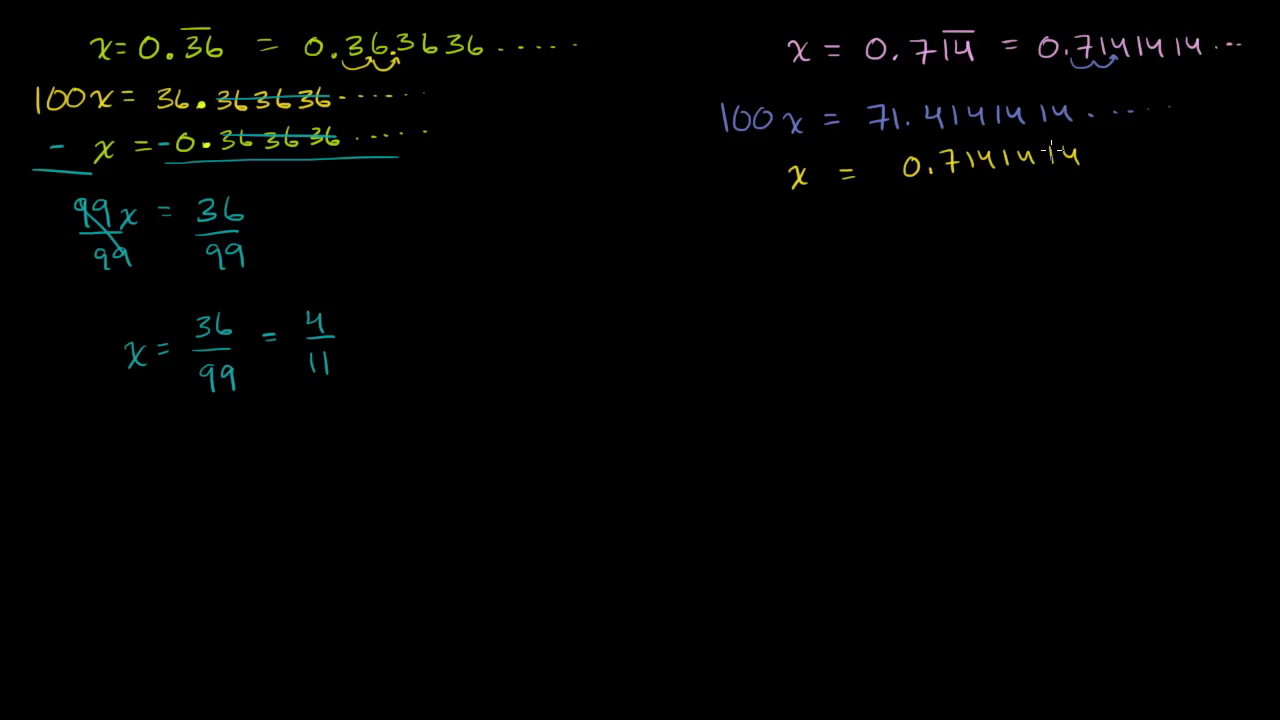 x = 0.3̅6̅ = 0.363636.....
100x = 36.363636.....
- x = -0.363636.....
99x/99 = 36/99
x = 36/99 = 4/11
x = 0.71̅4̅ = 0.7141414...
100x = 71.4141414.....
x = 0.7141414